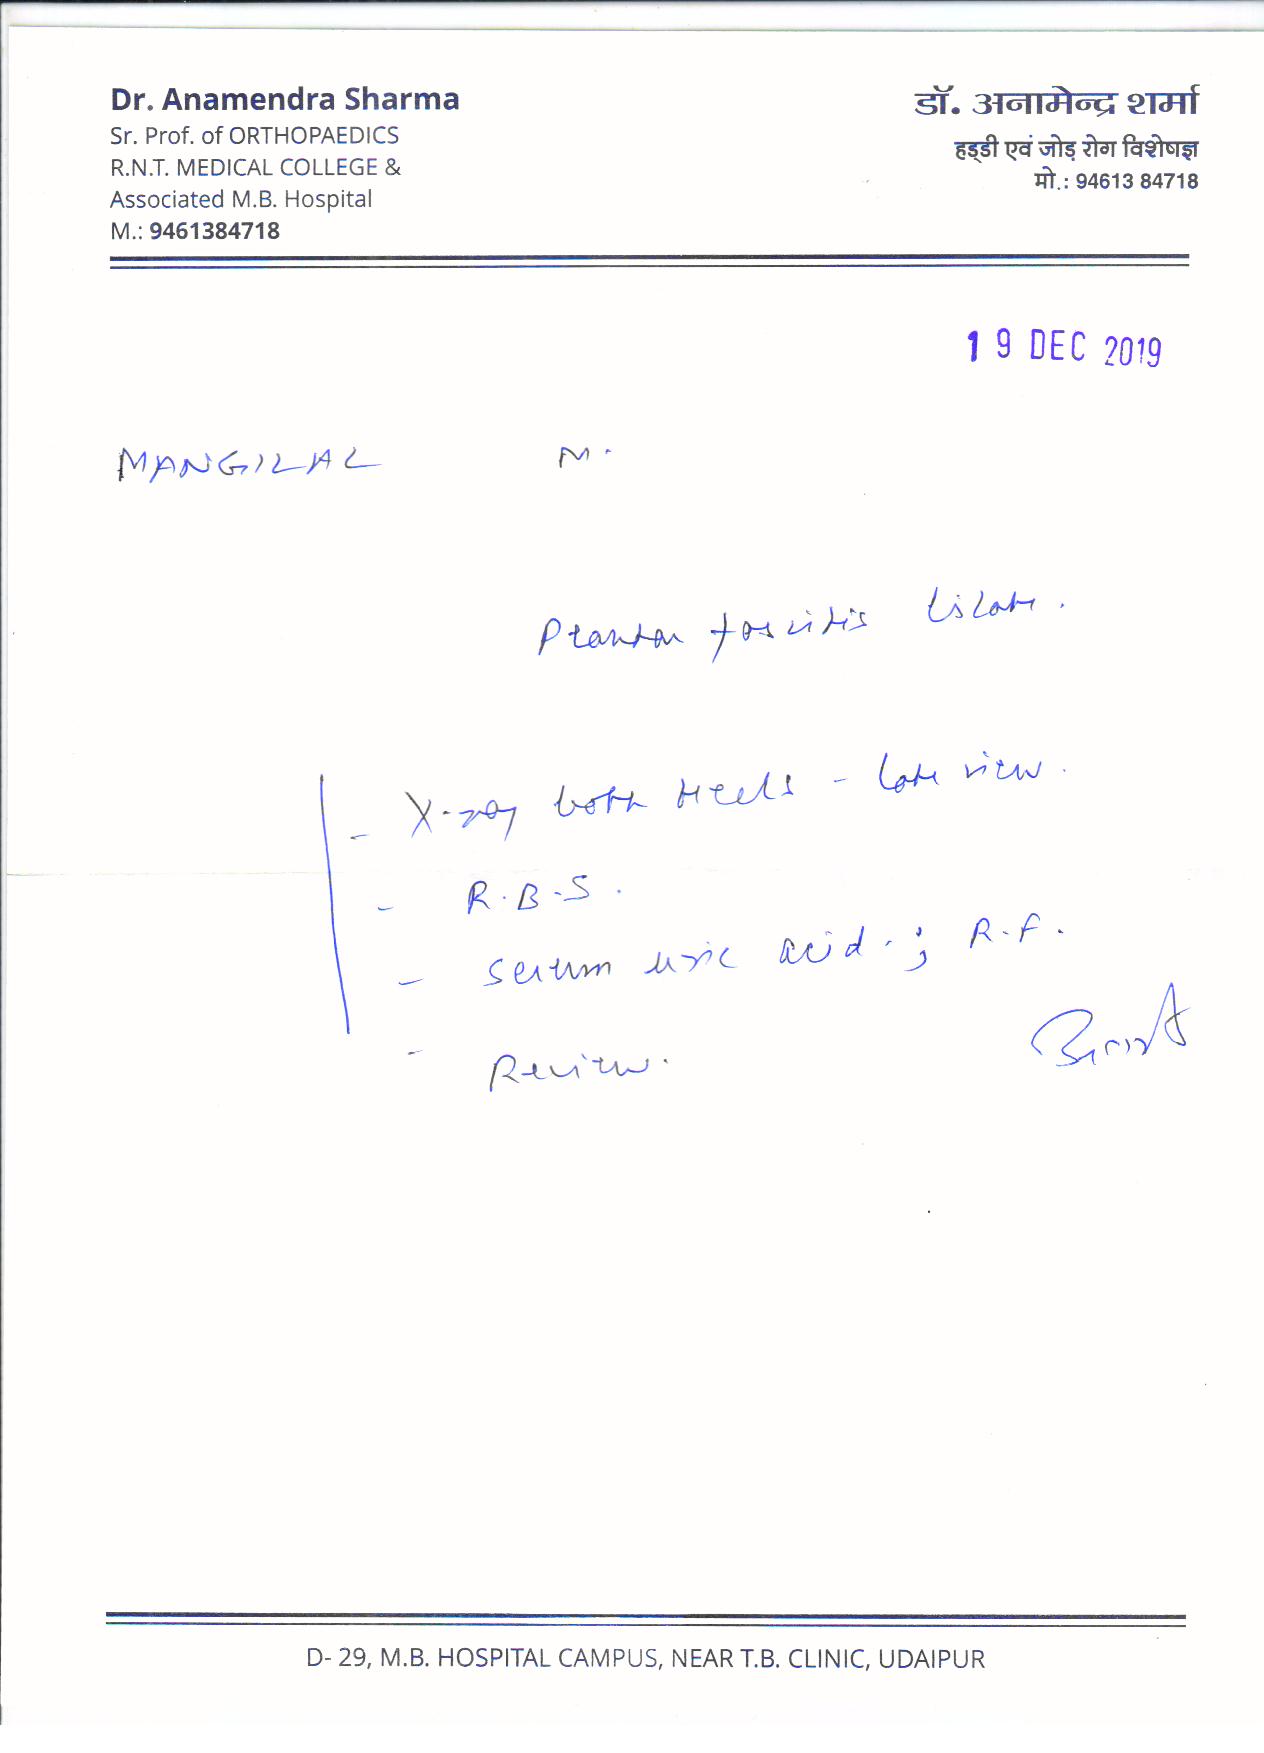 Dr. Anamendra Sharma
Sr. Prof. of ORTHOPAEDICS
R.N.T. MEDICAL COLLEGE &
Associated M.B. Hospital
M.: 9461384718
डॉ. अनामेन्द्र शर्मा
हड्डी एवं जोड़ रोग विशेषज्ञ
मो.: 94613 84718
19 DEC 2019
MANGILAL M.
Plantar fascitis
- X-ray both Heels - view.
- R.B.S.
- Serum uric acid. ; R.F.
- Review.
D- 29, M.B. HOSPITAL CAMPUS, NEAR T.B. CLINIC, UDAIPUR